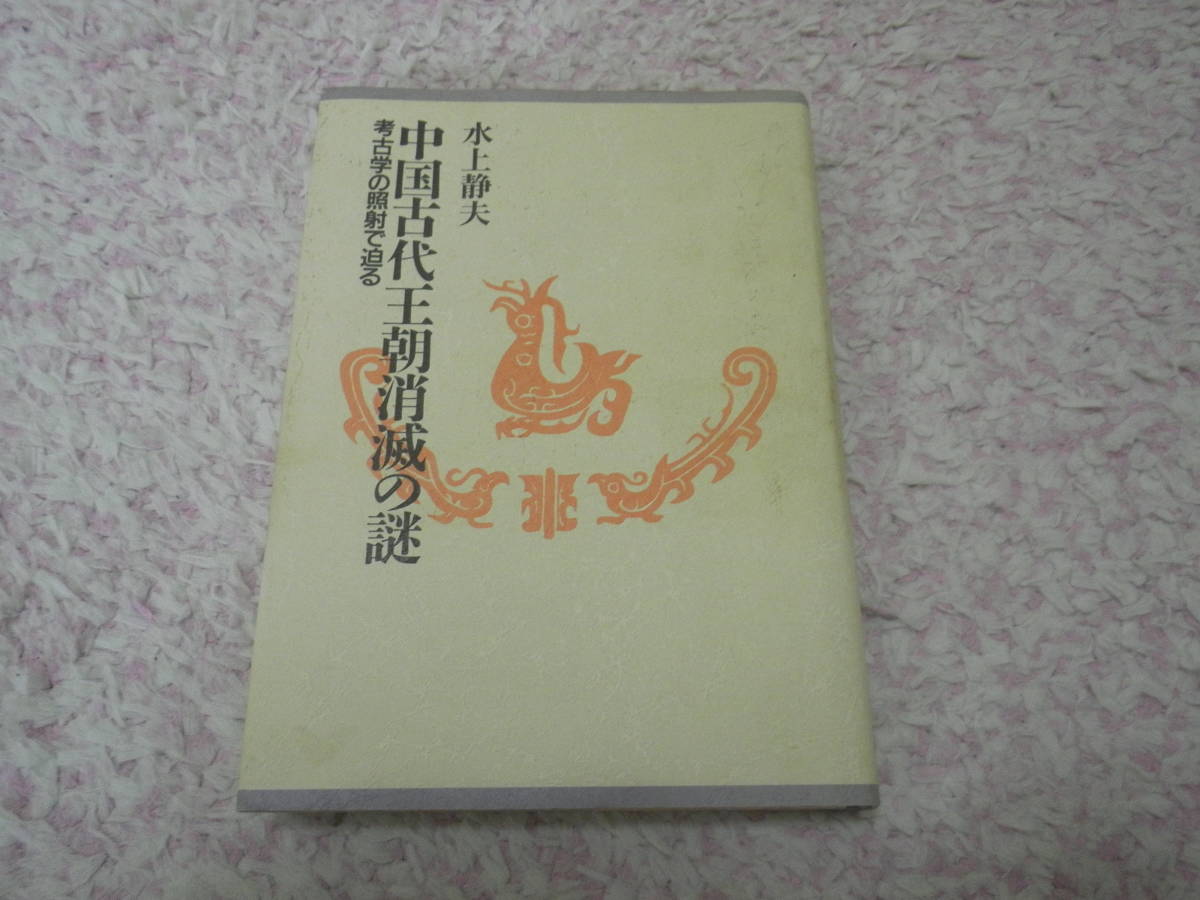 水上静夫
中国古代王朝消滅の謎
考古学の照射で迫る